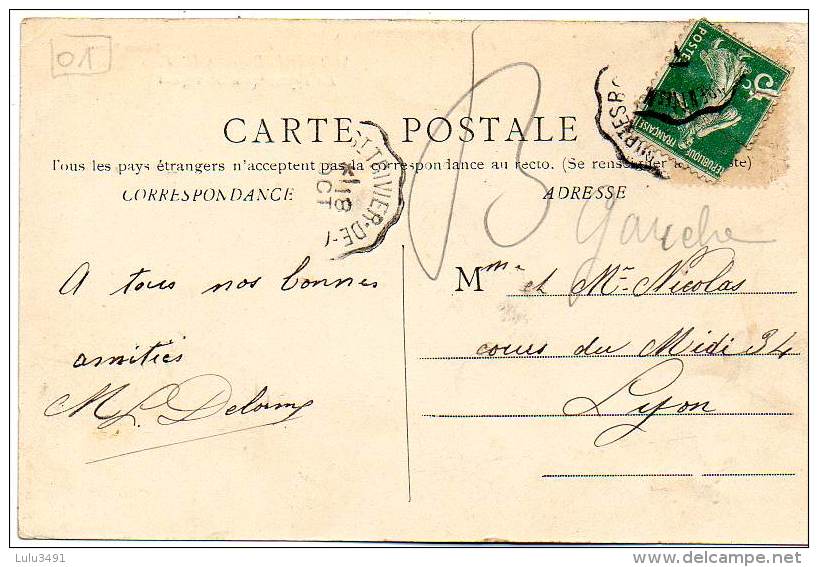 01
CARTE POSTALE
Tous les pays étrangers n'acceptent pas la correspondance au recto. (Se renseigner à la poste)
CORRESPONDANCE
ADRESSE
B
gauche
ST TRIVIER-DE-
18
OCT
POSTES
5c
REPUBLIQUE
FRANÇAISE
A tous nos bonnes
amitiés
M L Delorme
Mme et Mr Nicolas
cours du Midi 34
Lyon
Lulu3491
delcampe.net